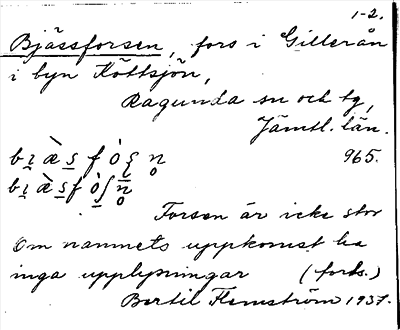 1-2.
Bjässforsen, fors i Gillerån
i byn Köttsjön,
Ragunda sn och tg,
Jämtl. län.
965.
Forsen är icke stor
Om namnets uppkomst ha
inga upplysningar (forts.)
Bertil Flemström 1937.